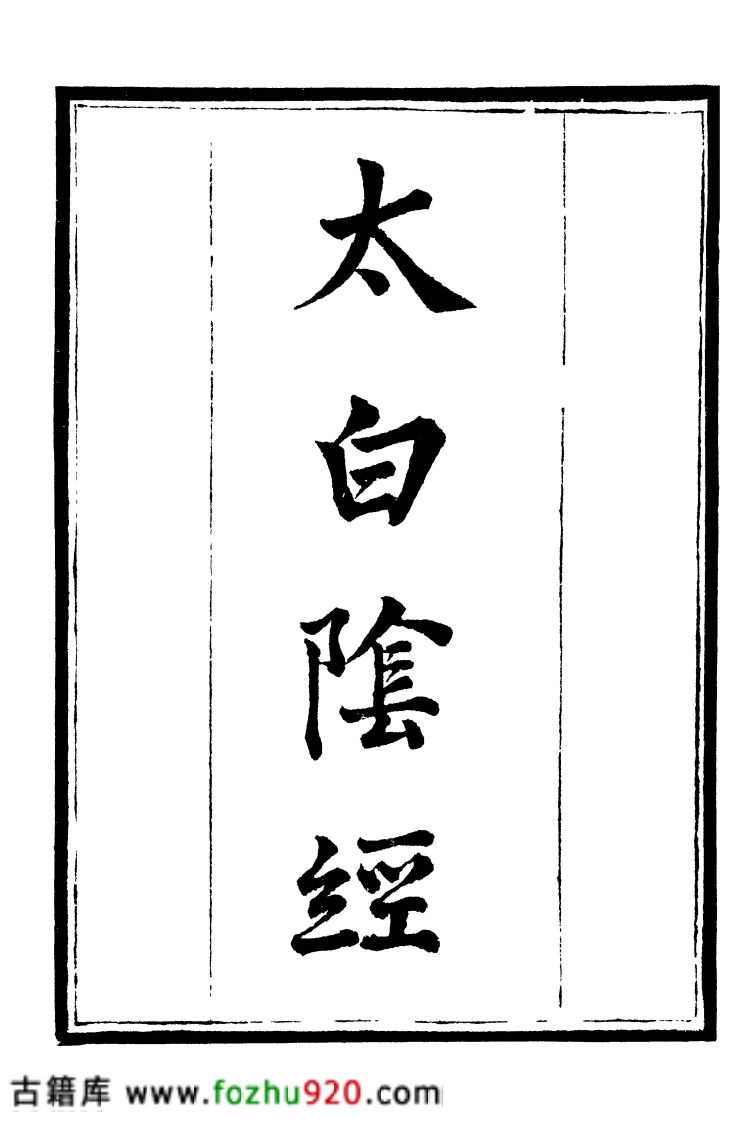 太白陰經
古籍库 www.fozhu920.com